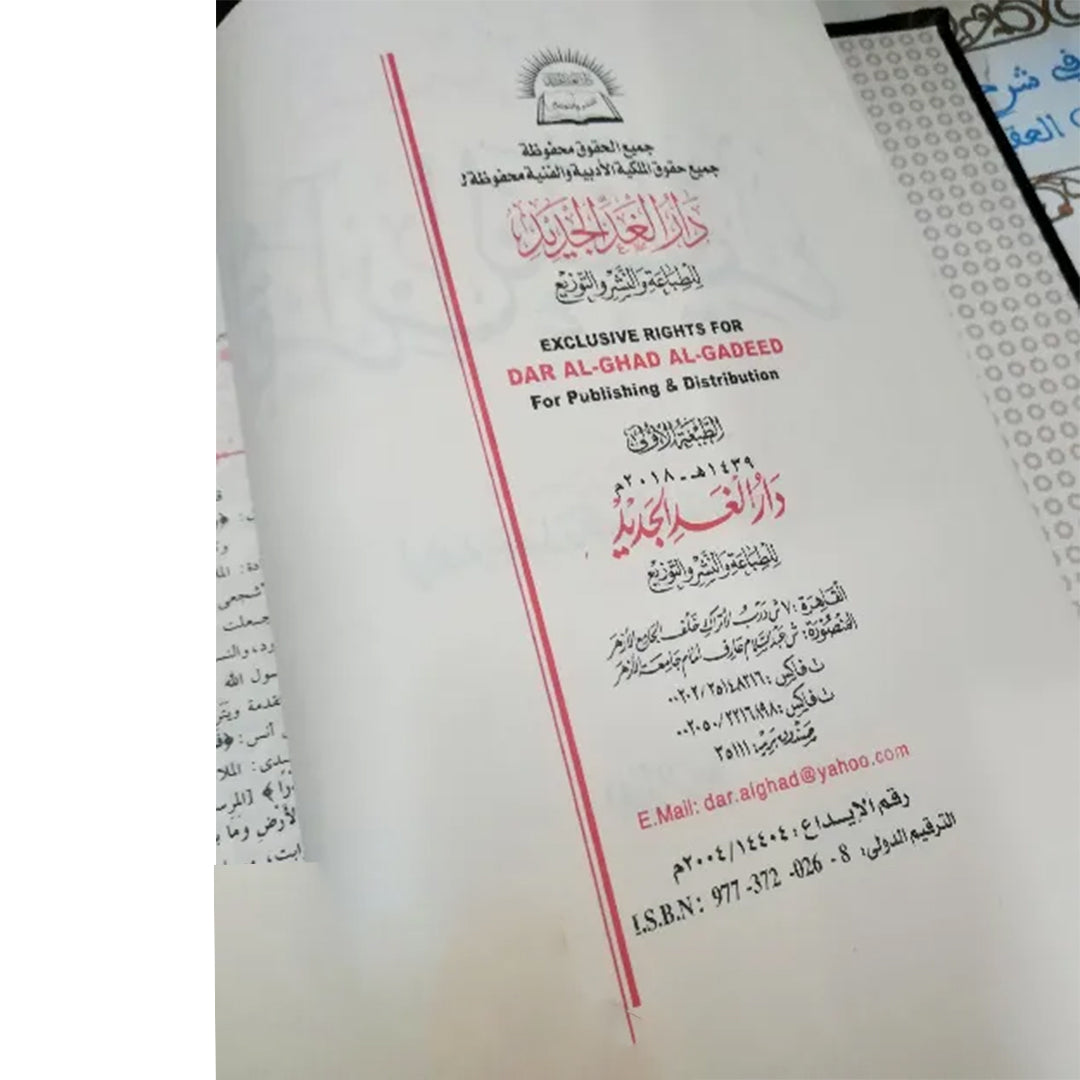 جميع الحقوق محفوظة
جميع حقوق الملكية الأدبية والفنية محفوظة لـ
دَارُ الغَدِ الجَدِيدِ
لِلطِّبَاعَةِ وَالنَّشْرِ وَالتَّوْزِيع
EXCLUSIVE RIGHTS FOR
DAR AL-GHAD AL-GADEED
For Publishing & Distribution
الطَّبْعَةُ الأُولَى
١٤٣٩هـ - ٢٠١٨م
دَارُ الغَدِ الجَدِيدْ
لِلطِّبَاعَةِ وَالنَّشْرِ وَالتَّوْزِيع
القَاهِرَة: ٧ ش دَرْبُ الأتراك خَلْفَ الجَامِع الأزهَر
المَنْصُورَة: ش عَبْدُ السَّلَام عَارِف أمَام جَامِعَة الأزهَر
ت فاكس: ٠٠٢٠٢/٢٥١٤٨٢١٦
ت فاكس: ٠٠٢٠٥٠/٢٢١٦٨٩٨
صندوق بريد: ٣٥١١١
E.Mail: dar.alghad@yahoo.com
رقم الإيـداع: ٢٠٠٤/١٤٤٠٤م
الترقيم الدولى:
I.S.B.N: 977-372 -026 - 8
فى شرح
العق
شجعى
جعلت
سول الله
قدمة
أنس:
الأرض وما